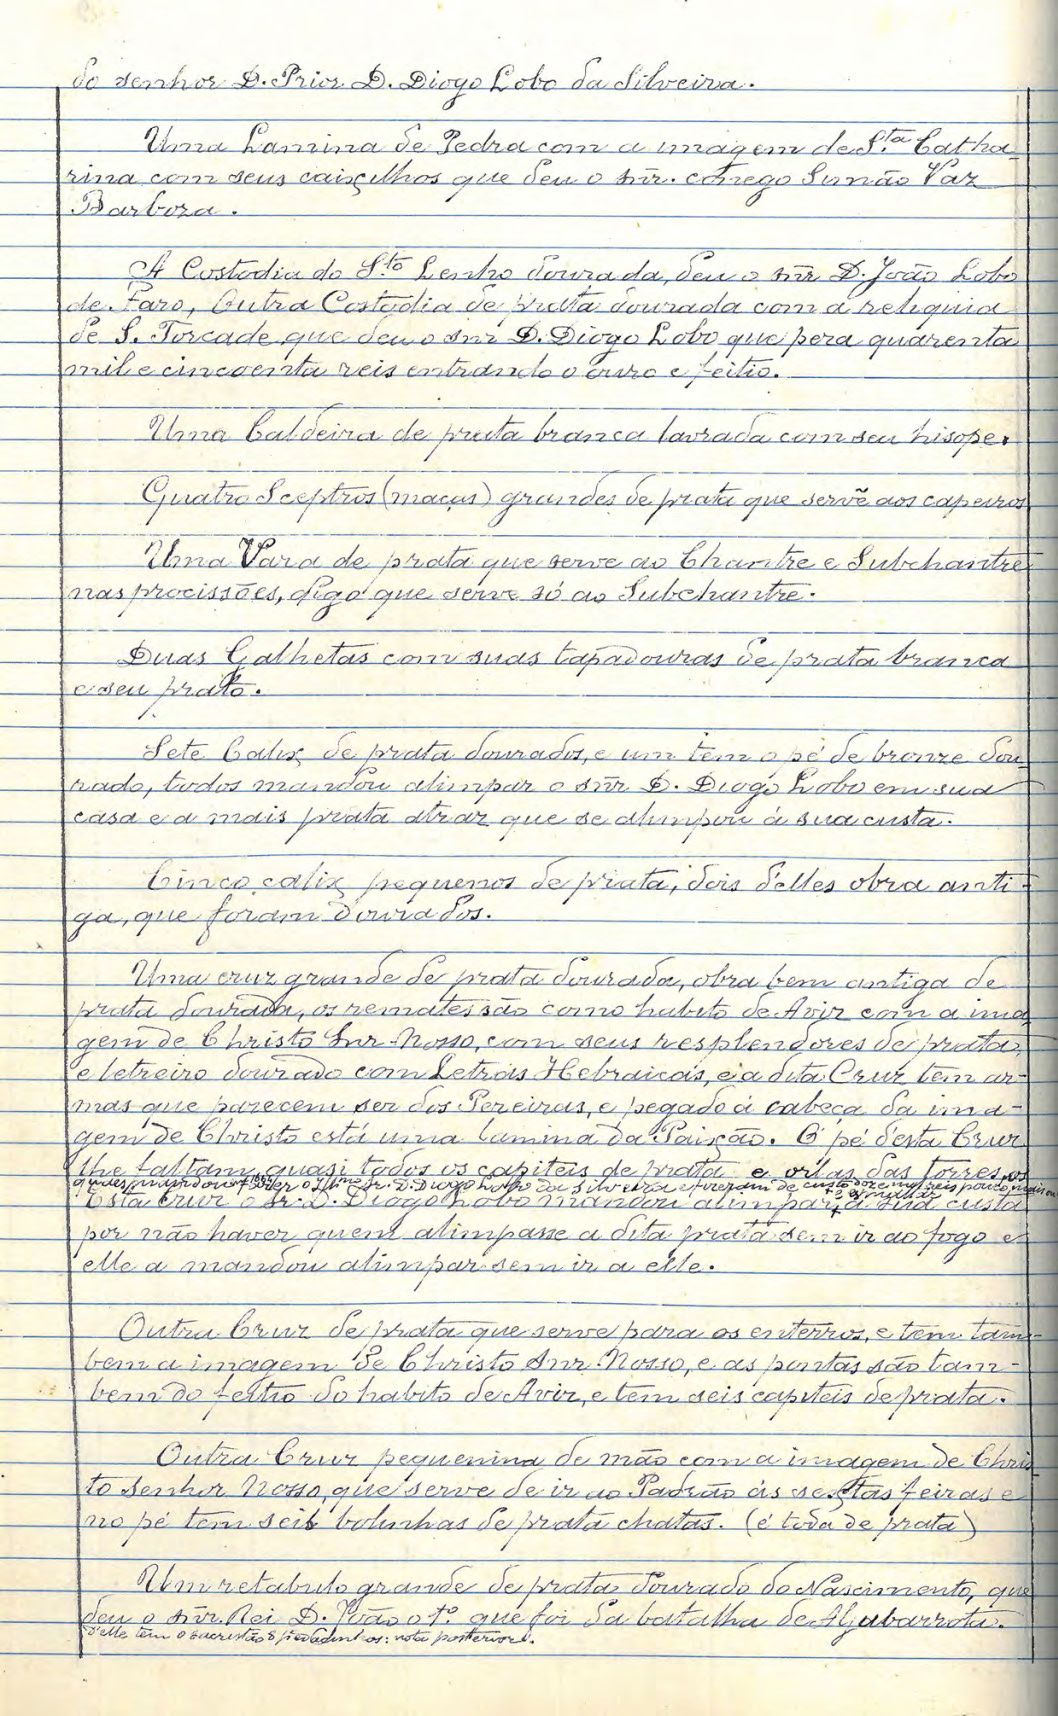 do senhor D. Prior D. Diogo Lobo da Silveira.
Uma Lamina de Pedra com a imagem de S.ta Catha-
rina com seus caixilhos que deu o snr. conego Simão Vaz
Barboza.
A Custodia do S.to Lenho dourada, deu o snr D. João Lobo
de Faro, Outra Custodia de prata dourada com a reliquia
de S. Torcade que deu o snr D. Diogo Lobo que pera quarenta
mil e cincoenta reis entrando o ouro e feitio.
Uma Caldeira de prata branca lavrada com seu hisope.
Quatro Sceptros (maças) grandes de prata que servẽ aos capeiros
Uma Vara de prata que serve ao Chantre e Subchantre
nas procissões, digo que serve só ao Subchantre.
Duas Galhetas com suas tapadouras de prata branca
e seu prato.
Sete Calix de prata dourados, e um tem o pé de bronze dou-
rado, todos mandou alimpar o snr D. Diogo Lobo em sua
casa e a mais prata atraz que se alimpou á sua custa.
Cinco calix pequenos de prata, dois d'elles obra anti-
ga, que foram dourados.
Uma cruz grande de prata dourada, obra bem antiga de
prata dourada, os remates são como habito de Aviz com a ima
gem de Christo Snr. Nosso, com seus resplendores de prata,
e letreiro dourado com Letras Hebraicas, e a dita Cruz tem ar-
mas que parecem ser dos Pereiras, e pegado á cabeça da ima-
gem de Christo está uma lamina da Paixão. O pé d'esta Cruz
lhe faltam quasi todos os capiteis de prata e vilas das torres, os
quaes mandou fazer o Ill.mo sr. D. Diogo Lobo da Silveira e fizeram de custo doze mil reis pouco mais ou
Esta cruz o sr. D. Diogo Lobo mandou alimpar, á sua custa
por não haver quem alimpasse a dita prata sem ir ao fogo e
elle a mandou alimpar sem ir a elle.
Outra Cruz de prata que serve para os enterros, e tem tam-
bem a imagem de Christo Snr. Nosso, e as pontas são tam-
bem do feitio do habito de Aviz, e tem seis capiteis de prata.
Outra Cruz pequenina de mão com a imagem de Chris
to Senhor Nosso, que serve de ir ao Padrão ás sextas feiras e
no pé tem seis bolinhas de prata chatas. (é toda de prata)
Um retabulo grande de prata dourado do Nascimento, que
deu o snr. Rei D. João o 1.º que foi da batalha de Aljubarrota.
d'elle tem o sacristão 8 pedadinhos: nota posterior.